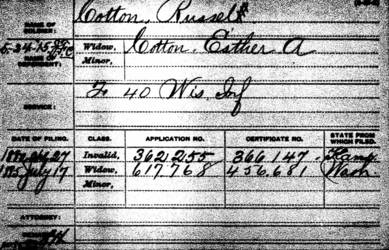 NAME OF SOLDIER: Cotton, Russel
NAME OF DEPENDENT: Widow, Cotton, Esther A
Minor,
SERVICE: F 40 Wis. Inf
DATE OF FILING. CLASS. APPLICATION NO. CERTIFICATE NO. STATE FROM WHICH FILED.
27 Invalid, 362255 366147 Kans
1895 July 17 Widow, 617768 456,681 Wash.
Minor,
ATTORNEY: